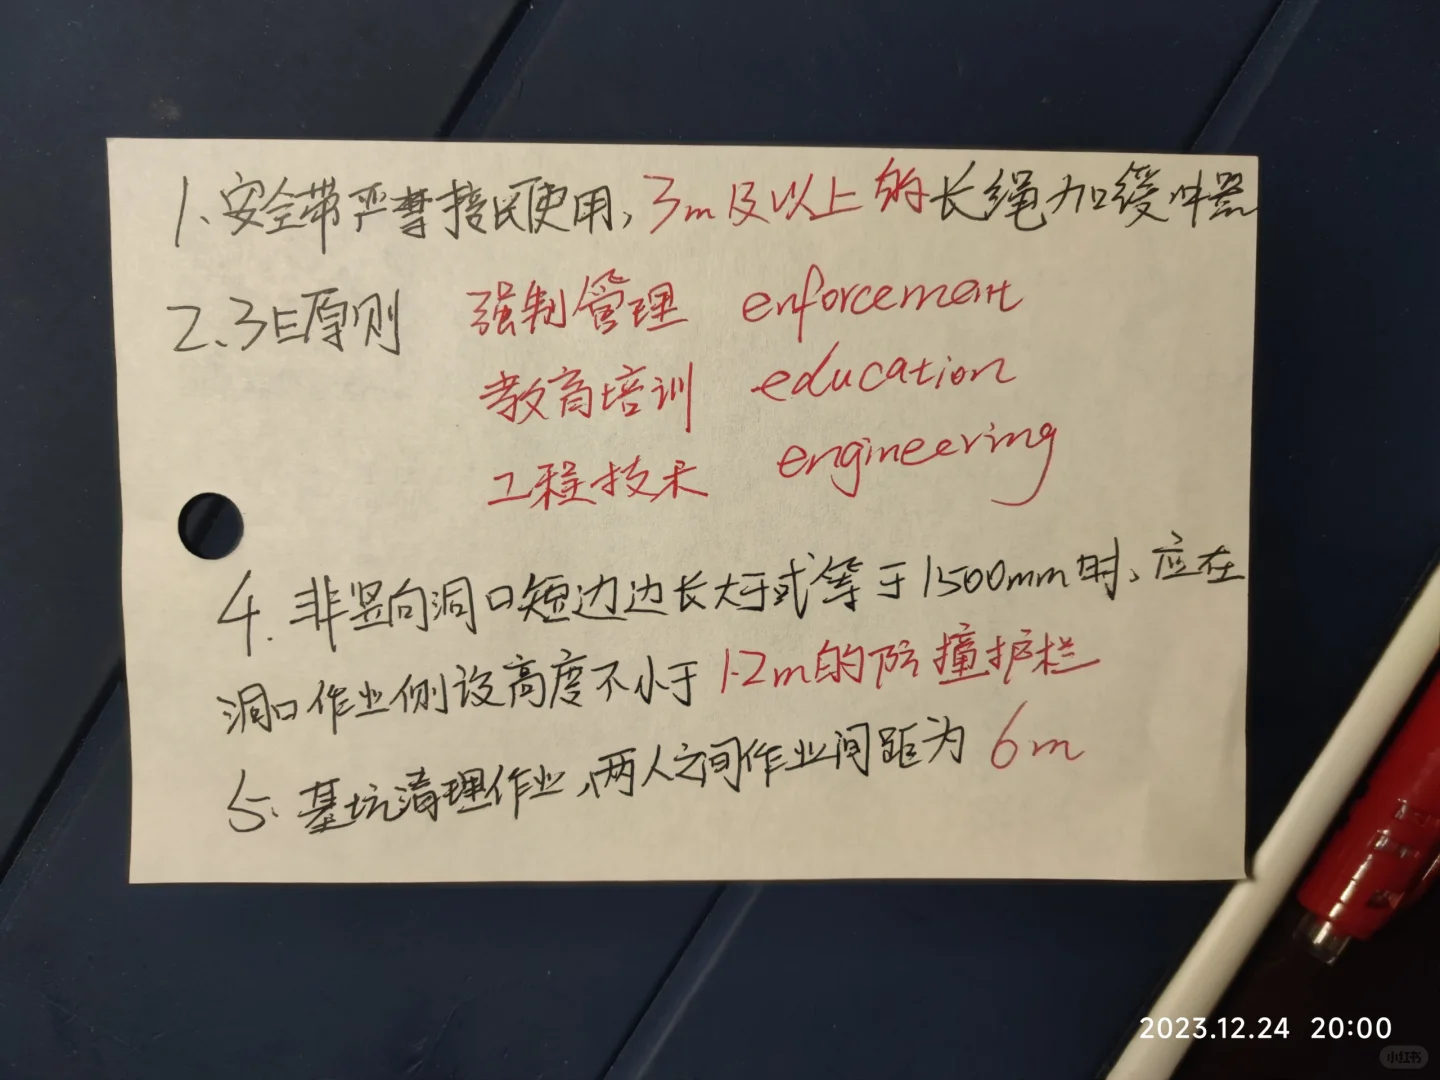 1、安全带严禁接长使用,3m及以上的长绳加缓冲器
2、3E原则 强制管理 enforcement
教育培训 education
工程技术 engineering
4.非竖向洞口短边边长大于或等于1500mm时、应在
洞口作业侧设高度不小于1.2m的防撞护栏
5、基坑清理作业,两人之间作业间距为6m
2023.12.24 20:00
小红书